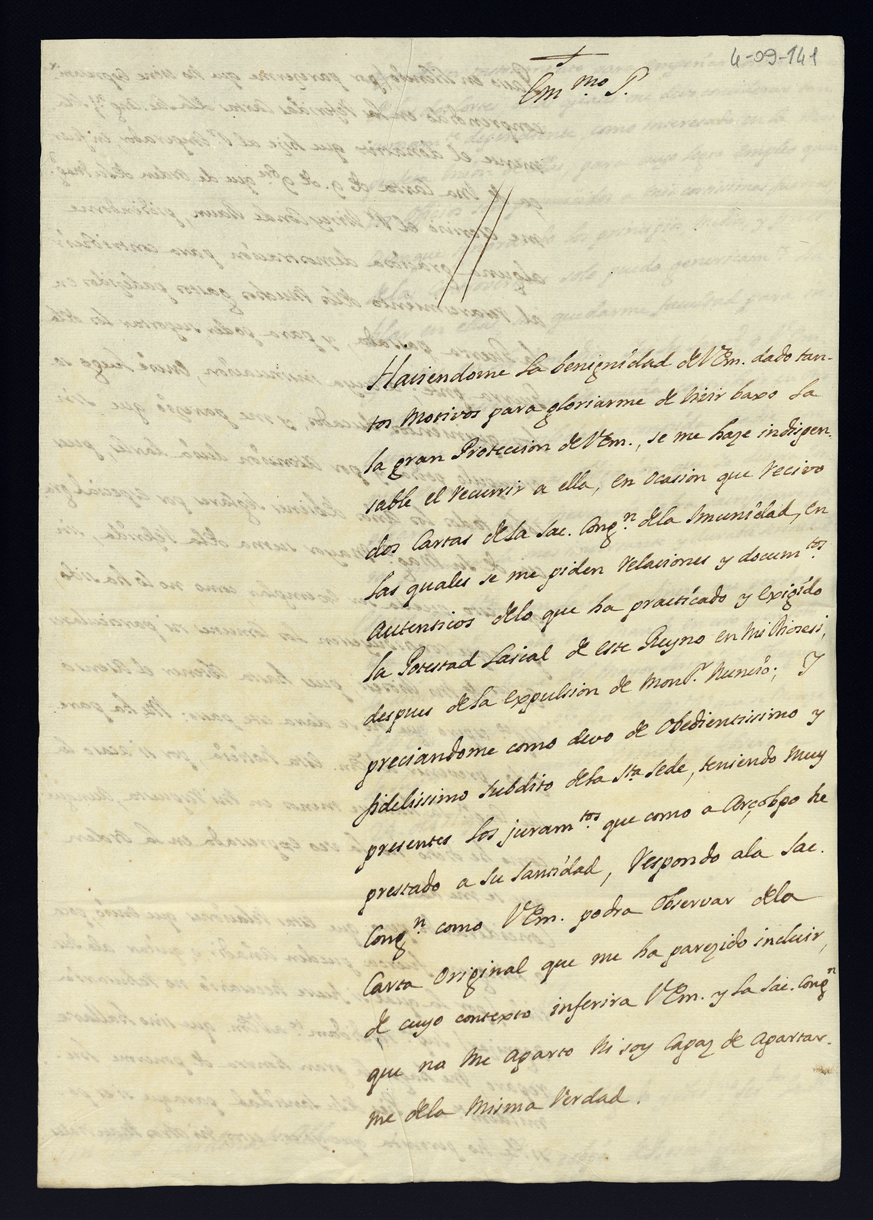 4-09-141
Em.mo S.
Haviendome la benignidad de V Em. dado tan-
tos Motivos para gloriarme de Vivir baxo la
la gran Proteccion de V Em., se me haze indispen-
sable el recurrir a ella, en ocasion que recivo
dos Cartas de la Sac. Cong.n de la Imunidad, en
las quales se me piden relaciones y docum.tos
autenticos delo que ha practicado y exigido
la Potestad Laical de este Reyno en mi Diocesi,
despues de la expulsion de Mons.r Nuncio; Y
preciandome como devo de Obedientissimo y
fidelissimo subdito de la S.ta Sede, teniendo muy
presentes los juram.tos que como a Arçobpo he
prestado a Su Santidad, respondo ala Sac.
Cong.n como V Em. podra Observar dela
Carta Original que me ha parezido incluir,
de cuyo contexto inferira V Em. y la Sac. Cong.n
que no me aparto ni soy Capaz de apartar-
me dela misma Verdad.